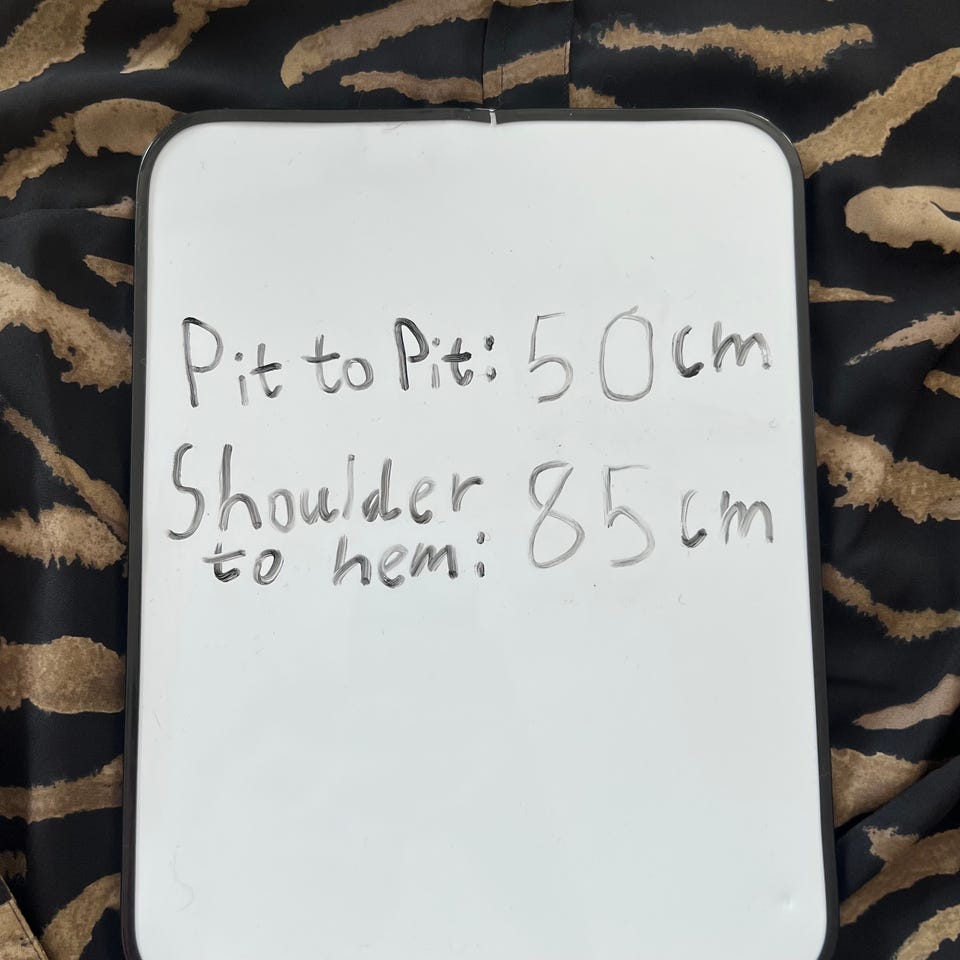 Pit to Pit: 50 cm
Shoulder 85 cm
to hem: